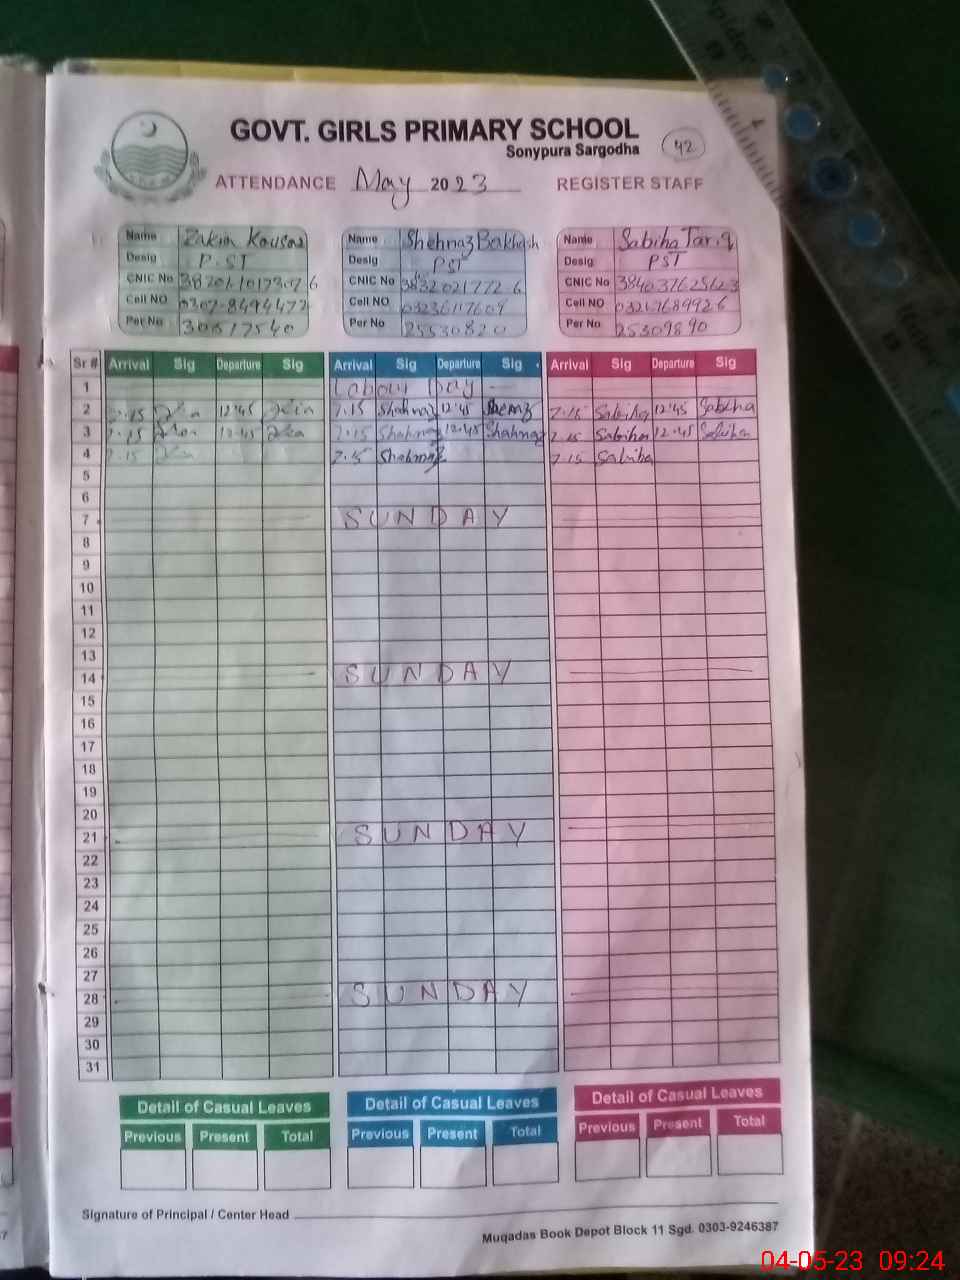 GOVT. GIRLS PRIMARY SCHOOL
Sonypura Sargodha
42
ATTENDANCE May 2023 REGISTER STAFF
Name Zakia Kousar Name Shehnaz Bakhash Name Sabiha Tariq
Desig P.ST Desig PST Desig PST
CNIC No CNIC No CNIC No
Cell NO 0307-8494472 Cell NO 03236117609 Cell NO 03267689926
Per No 30617540 Per No 25530820 Per No 25309890
Sr # Arrival Sig Departure Sig Arrival Sig Departure Sig Arrival Sig Departure Sig
1 Labour Day
2 7.15 12:45 7.15 Shahnaz 12:45 7.15 Sabiha 12:45 Sabiha
3 7.15 12:45 7.15 Shahnaz 12:45 Shahnaz 7.15 Sabiha 12:45 Sabiha
4 7.15 7.15 Shahnaz 7.15 Sabiha
5
6
7 SUNDAY
8
9
10
11
12
13
14 SUNDAY
15
16
17
18
19
20
21 SUNDAY
22
23
24
25
26
27
28 SUNDAY
29
30
31
Detail of Casual Leaves Detail of Casual Leaves Detail of Casual Leaves
Previous Present Total Previous Present Total Previous Present Total
Signature of Principal / Center Head
Muqadas Book Depot Block 11 Sgd. 0303-9246387
04-05-23 09:24